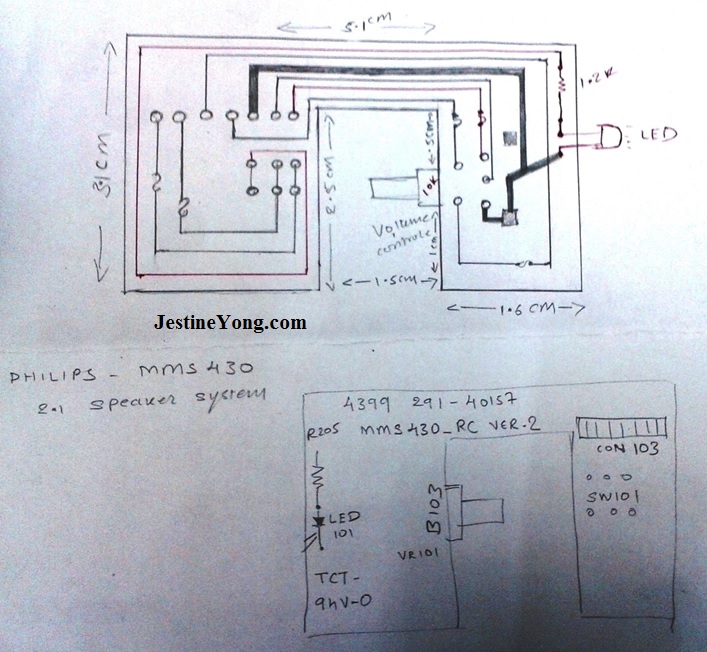 5.1cm
1.2K
LED
31cm
2.5cm
.5cm
10K
Volume
controle
1cm
1.5cm
1.6cm
JestineYong.com
PHILIPS - MMS 430
2.1 speaker system
4399 291-40157
R205 MMS430_RC VER.2
CON 103
SW101
LED
101
B103
VR101
TCT-
94V-0